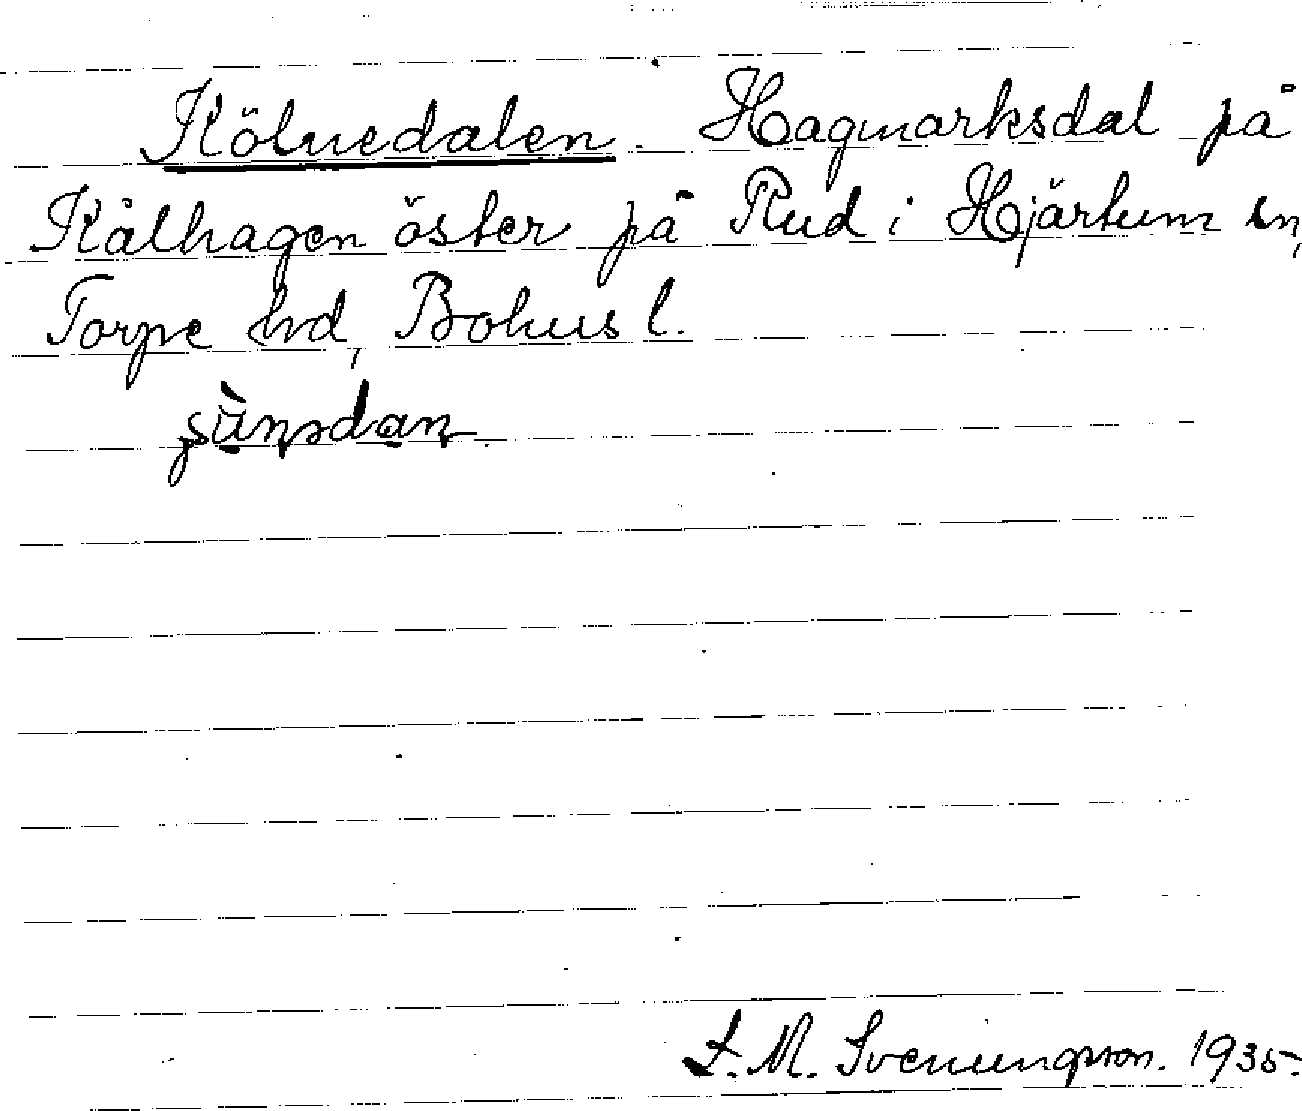 Kölnedalen Hagmarksdal på
Kålhagen öster på Rud i Hjärtum sn,
Torpe hd, Bohusl.
S. M. Svenungsson. 1935.